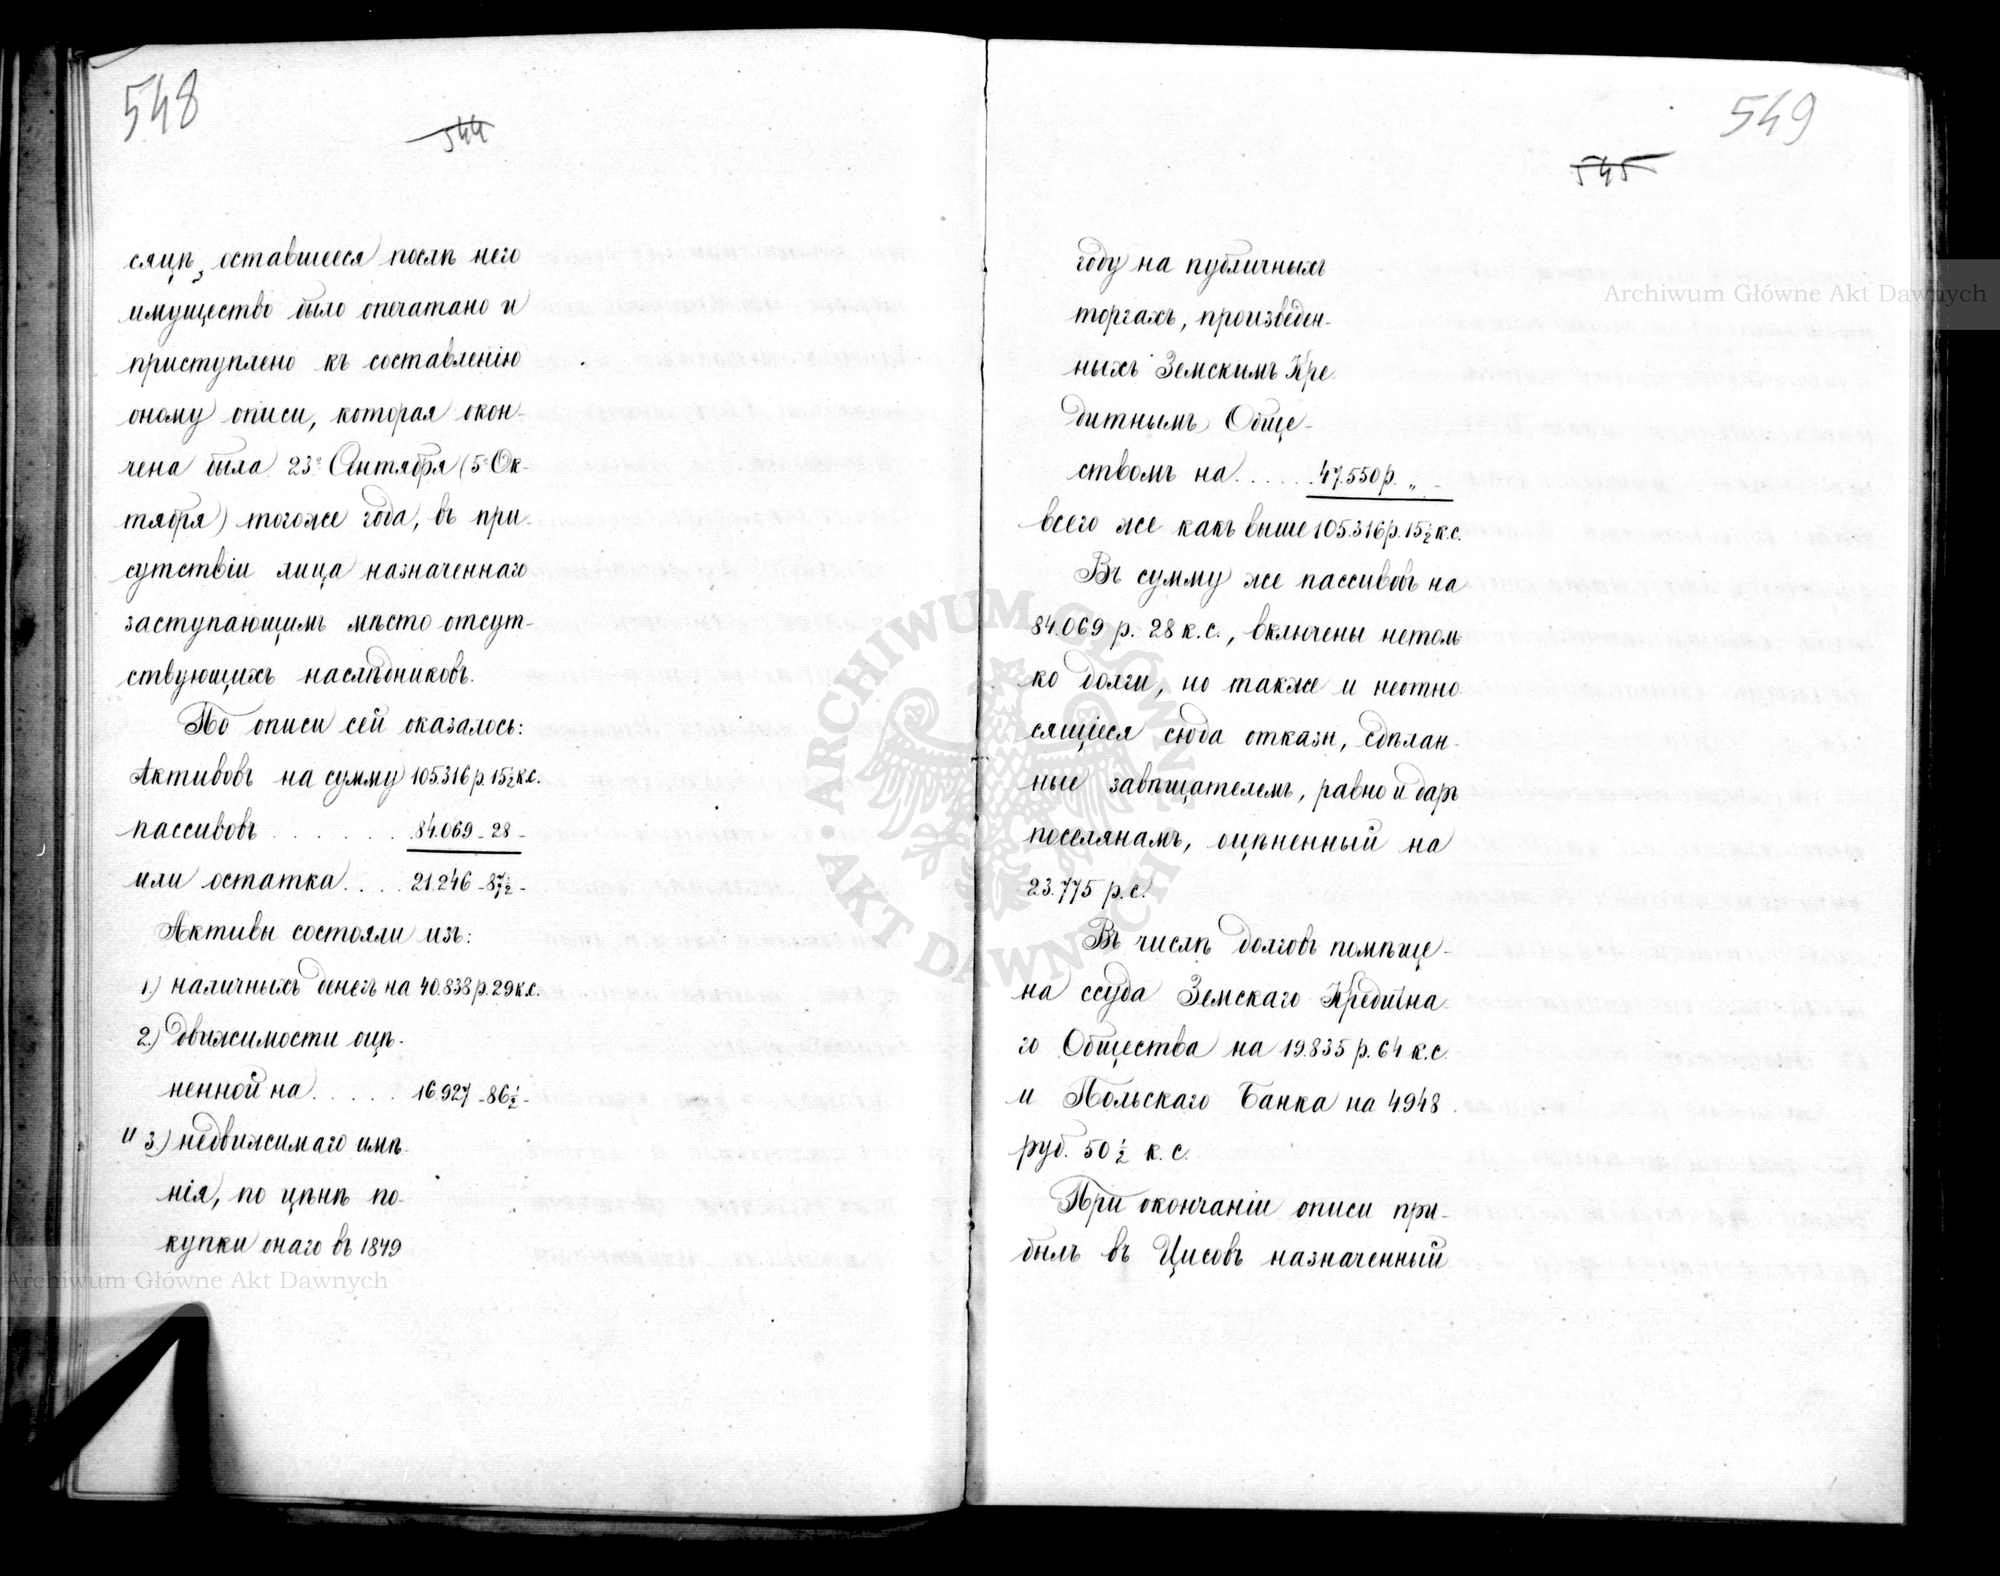 548
544
сяцѣ, оставшееся послѣ него
имущество было опечатано и
приступлено къ составленію
оному описи, которая окон-
чена была 23º Сентября (5º Ок-
тября) тогоже года, въ при-
сутствіи лица назначеннаго
заступающимъ мѣсто отсут-
ствующихъ наслѣдниковъ.
По описи сей оказалось:
Активовъ на сумму 105.316 р. 15½ к.с.
пассивовъ . . . . . . . 84.069 - 28 -
или остатка . . . . 21.246 - 87½ -
Активы состояли изъ:
1.) наличныхъ денегъ на 40.838 р. 29 к.с.
2.) движимости оцѣ-
ненной на . . . . . 16.927 - 86½ -
и 3.) недвижимаго имѣ-
нія, по цѣнѣ по-
купки онаго въ 1849
549
545
году на публичныхъ
торгахъ, произведен-
ныхъ Земскимъ Кре-
дитнымъ Обще-
ствомъ на . . . . . 47.550 р. „ -
всего же какъ выше 105.316 р. 15½ к.с.
Въ сумму же пассивовъ на
84.069 р. 28 к.с., включены нетоль
ко долги, но также и неотно-
сящіеся сюда отказы, сдѣлан-
ные завѣщателемъ, равно и даръ
поселянамъ, оцѣненный на
23.775 р.с.
Въ числѣ долговъ помѣще-
на ссуда Земскаго Кредитна-
го Общества на 19.835 р. 64 к.с.
и Польскаго Банка на 4948
руб. 50½ к.с.
При окончаніи описи при-
былъ въ Цисовъ назначенный
Archiwum Główne Akt Dawnych
Archiwum Główne Akt Dawnych
ARCHIWUM GŁÓWNE AKT DAWNYCH